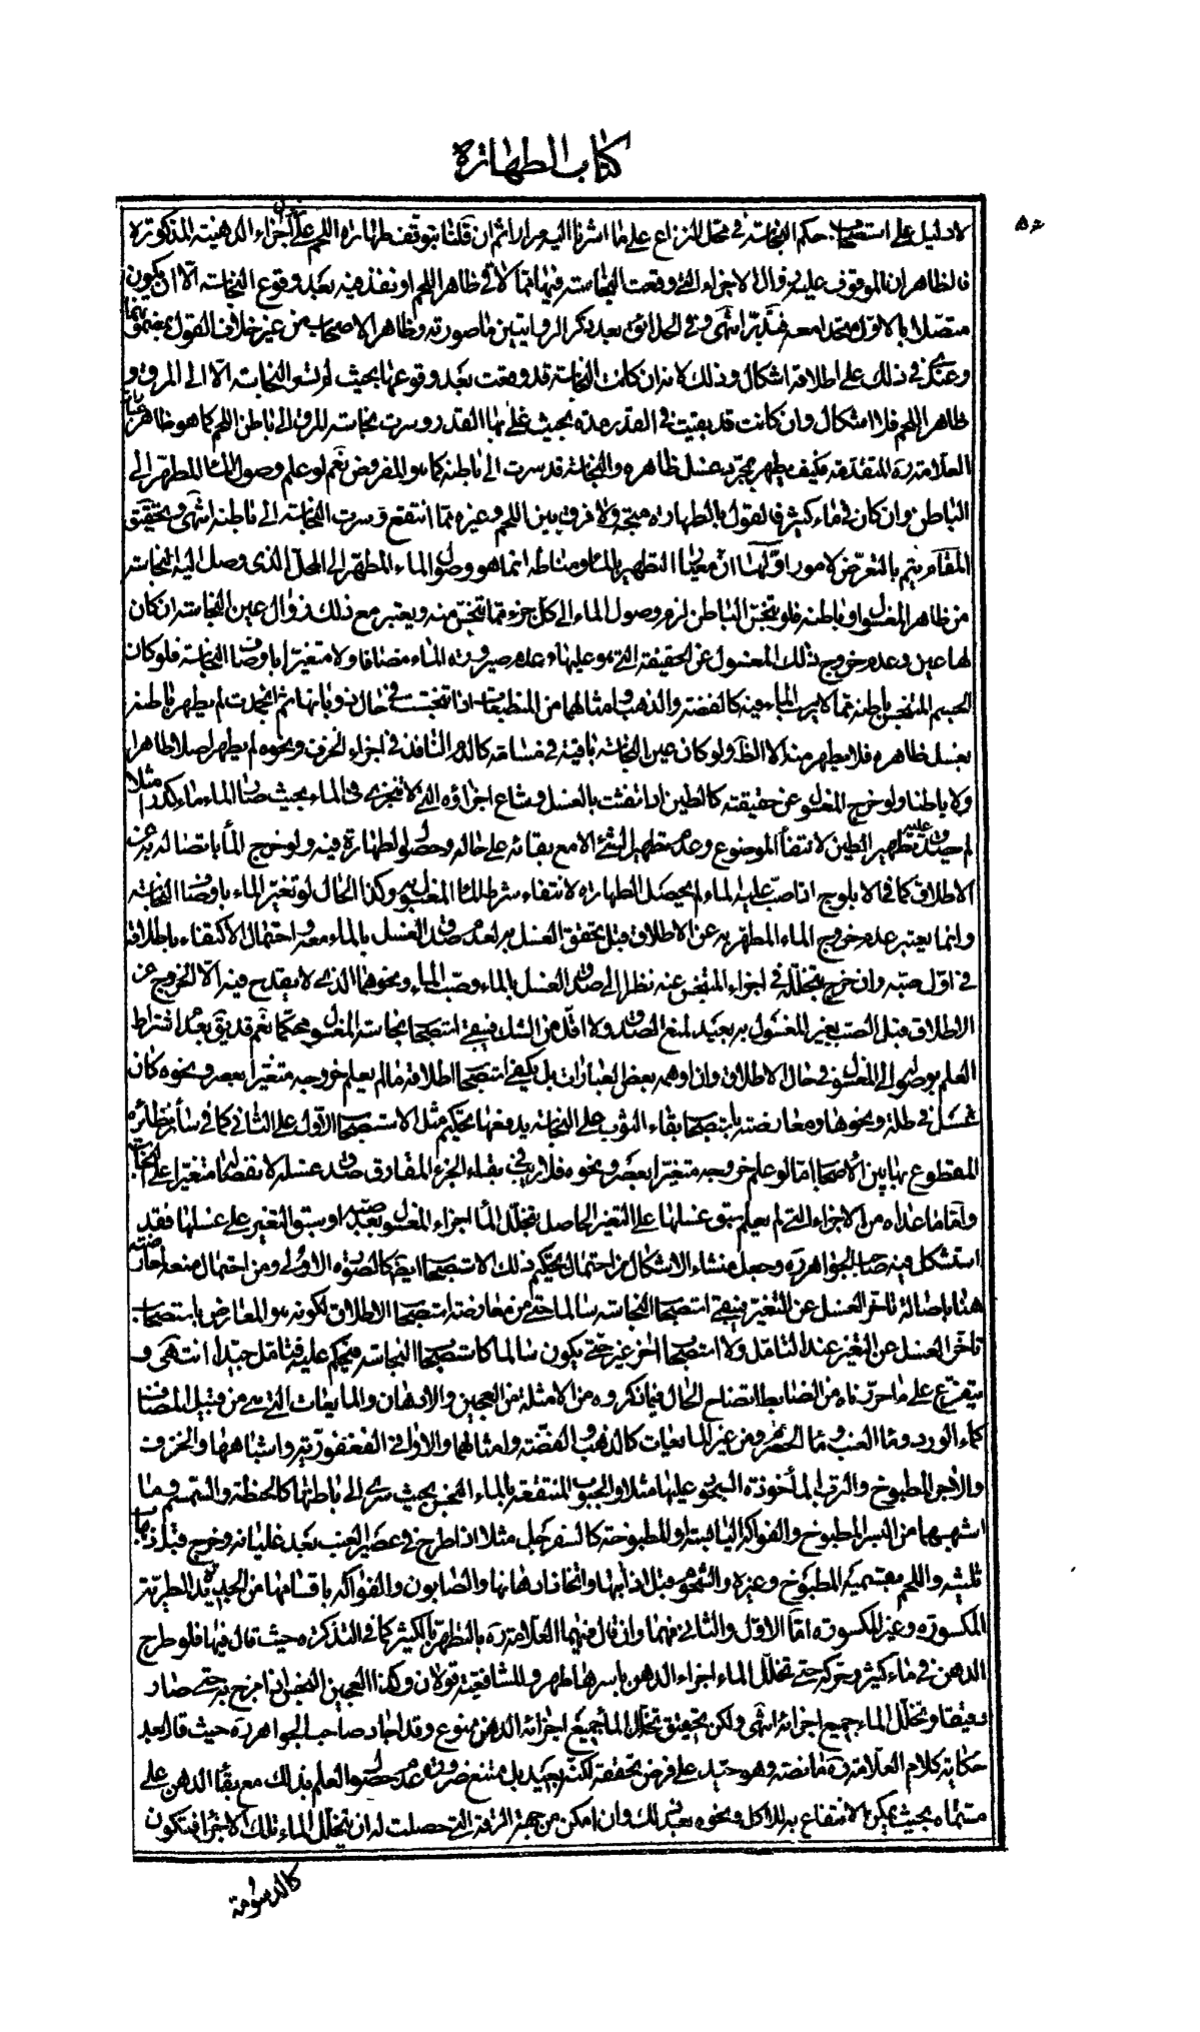 كتاب الطهارة
لا دليل على استصحاب حكم النجاسة في محل النزاع على ما اشرنا اليه مرارا ثم ان قلنا بتوقف طهارة اللحم على غسل اجزاء الدهنية المذكورة
فالظاهر ان الموقوف عليه زوال الاجزاء التي وقعت النجاسة فيها مما لاقى ظاهر اللحم او نفذ فيه بعد وقوع النجاسة الا ان يكون
متصلا بالاول متحدا معه فتدبر انتهى وفي الحدائق بعد ذكر الروايتين ما صورته وظاهر الاصحاب من غير خلاف القول بمضمونهما
وعندي في ذلك على اطلاقه اشكال وذلك لانه ان كانت النجاسة قد وقعت بعد وقوعها بحيث لم تسر النجاسة الا الى المرق و
ظاهر اللحم فلا اشكال وان كانت قد بقيت في القدر مدة بحيث غلى بها القدر وسرت نجاسة المرق الى باطن اللحم كما هو ظاهر عبارة
العلامة ره المتقدمة فكيف يطهر بمجرد غسل ظاهره والنجاسة قد سرت الى باطنه كما هو المفروض نعم لو علم وصول الماء المطهر الى
الباطن وان كان في ماء كثير فالقول بالطهارة متجه ولا فرق بين اللحم وغيره مما انتقع وسرت النجاسة الى باطنه انتهى وتحقيق
المقام يتم بالتعرض لامور اولها ان معيار التطهير بالماء ومناطه انما هو وصول الماء المطهر الى المحل الذي وصل اليه النجاسة
من ظاهر المغسول او باطنه فلو تنجس الباطن لزم وصول الماء الى كل جزء مما تنجس منه ويعتبر مع ذلك زوال عين النجاسة ان كان
لها عين وعدم خروج ذلك المغسول عن الحقيقة التي هو عليها وعدم صيرورة الماء مضافا ولا متغيرا باوصاف النجاسة فلو كان
الجسم المتنجس باطنه مما لا يرسب الماء فيه كالفضة والذهب وامثالهما من المنطبعات اذا تنجست في حال ذوبانها ثم انجمدت لم يطهر باطنه
بغسل ظاهره فلا يطهر منه الا الظاهر ولو كان عين النجاسة باقية في مسامه كالدم النافذ في اجزاء الخزف ونحوه لم يطهر اصلا لا ظاهرا
ولا باطنا ولو خرج المغسول عن حقيقته كالطين اذا تفتت بالغسل وشاع اجزاؤه التي لا تتجزى في الماء بحيث صار الماء ماء كدرا مثلا
لم يصدق عليه تطهير الطين لانتفاء الموضوع وعدم تطهير الشيء الا مع بقائه على حاله وحصول الطهارة فيه ولو خرج الماء باتصاله به عن
الاطلاق كما في الابلوج اذا صب عليه الماء لم يحصل الطهارة لانتفاء شرط الماء المغسول به وكذا الحال لو تغير الماء باوصاف النجاسة
وانما يعتبر عدم خروج الماء المطهر به عن الاطلاق قبل تحقق الغسل به لعدم صدق الغسل بالماء معه واحتمال الاكتفاء باطلاقه
في اول صبه وان خرج بتخلله في اجزاء المتنجس عنه نظرا الى صدق الغسل بالماء وصب الماء ونحوهما الذي لا يقدح فيه الا الخروج عن
الاطلاق قبل الصب بغير المغسول به بعيد لمنع الصدق ولا اقل من الشك فيبقى استصحاب نجاسة المغسول محكما نعم قد يق بعدم اشتراط
العلم بوصوله الى المغسول في حال الاطلاق وان اوهمه بعض العبارات بل يكفي استصحاب اطلاقه ما لم يعلم خروجه متغيرا بعصر ونحوه كان
غسل في ظلمة ونحوها ومعارضته باستصحاب بقاء الثوب على النجاسة يدفعها تحكيم مثل الاستصحاب الاول على الثاني كما في سائر نظائره
المقطوع بها بين الاصحاب اما لو علم خروجه متغيرا بعصر ونحوه فلا ريب في بقاء الجزء المفارق صدق غسله لانفصاله متغيرا على النجاسة
واما ما عداه من الاجزاء التي لم يعلم سبق غسلها على التغير الحاصل بتخلل الماء اجزاء المغسول بعد صبه او سبق التغير على غسلها فقد
استشكل فيه صاحب الجواهر ره وجعل منشاء الاشكال من احتمال تحكيم ذلك الاستصحاب ايضا كالصورة الاولى ومن احتمال منعه لمعارضته
هنا باصالة تاخر الغسل عن التغير فيبقى استصحاب النجاسة سالما حتى من معارضة استصحاب الاطلاق لكونه هو المعارض باستصحاب
تاخر الغسل عن التغير عند التامل ولا استصحاب اخر غيره حتى يكون سالما كاستصحاب النجاسة فيحكم عليه فتامل جيدا انتهى و
يتفرع على ما حررناه من الضابط اتضاح الحال فيما ذكروه من الامثلة من العجين والادهان والمايعات التي هي من قبيل المضاف
كماء الورد وماء العنب وماء الحصرم ومن غير المايعات كالذهب والفضة وامثالهما والاواني الفغفورية واشباهها والخزف
والاجر المطبوخ والترب المأخوذة السجود عليها مثلا والحبوب المنتقعة بالماء النجس بحيث سرى الى باطنها كالحنطة والسمسم وما
اشبههما من البسر المطبوخ والفواكه اليابسة او المطبوخة كالسفرجل مثلا اذا طرح في عصير العنب بعد غليانه وخرج قبل ذهاب
ثلثيه واللحم بقسميه المطبوخ وغيره والشحوم قبل اذابتها واتخاذ ادهانها والصابون والفواكه باقسامها من الجديدة الطرية
المكسورة وغير المكسورة اما الاول والثاني فهما وان قال فيهما العلامة ره بالتطهر بالكثير كما في التذكرة حيث قال فيها فلو طرح
الدهن في ماء كثير وحركه حتى تخلل الماء اجزاء الدهن باسرها طهر وللشافعية قولان وكذا العجين النجس اذا مزج به حتى صار
رقيقا وتخلل الماء جميع اجزائه انتهى ولكن تحقيق تخلل الماء جميع اجزائه الدهن ممنوع وقد اجاد صاحب الجواهر ره حيث قال بعد
حكاية كلام العلامة ره ما نصه وهو جيد على فرض تحققه لكنه بعيد بل ممتنع ضرورة عدم حصول العلم بذلك مع بقاء الدهن على
مسماه بحيث يمكن الانتفاع به للاكل ونحوه بعد ذلك وان امكن من جهة الرقة التي حصلت له ان يتخلل الماء تلك الاجزاء فتكون
كالدسومة